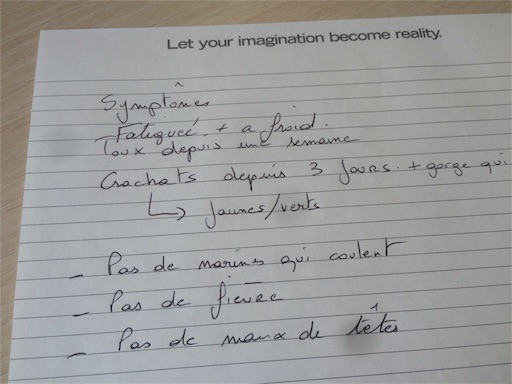 Let your imagination become reality.
Symptômes
Fatiguée. + a froid.
Toux depuis une semaine
Crachats depuis 3 jours. + gorge qui
↳ jaunes/verts
- Pas de narines qui coulent
- Pas de fièvre
- Pas de maux de têtes